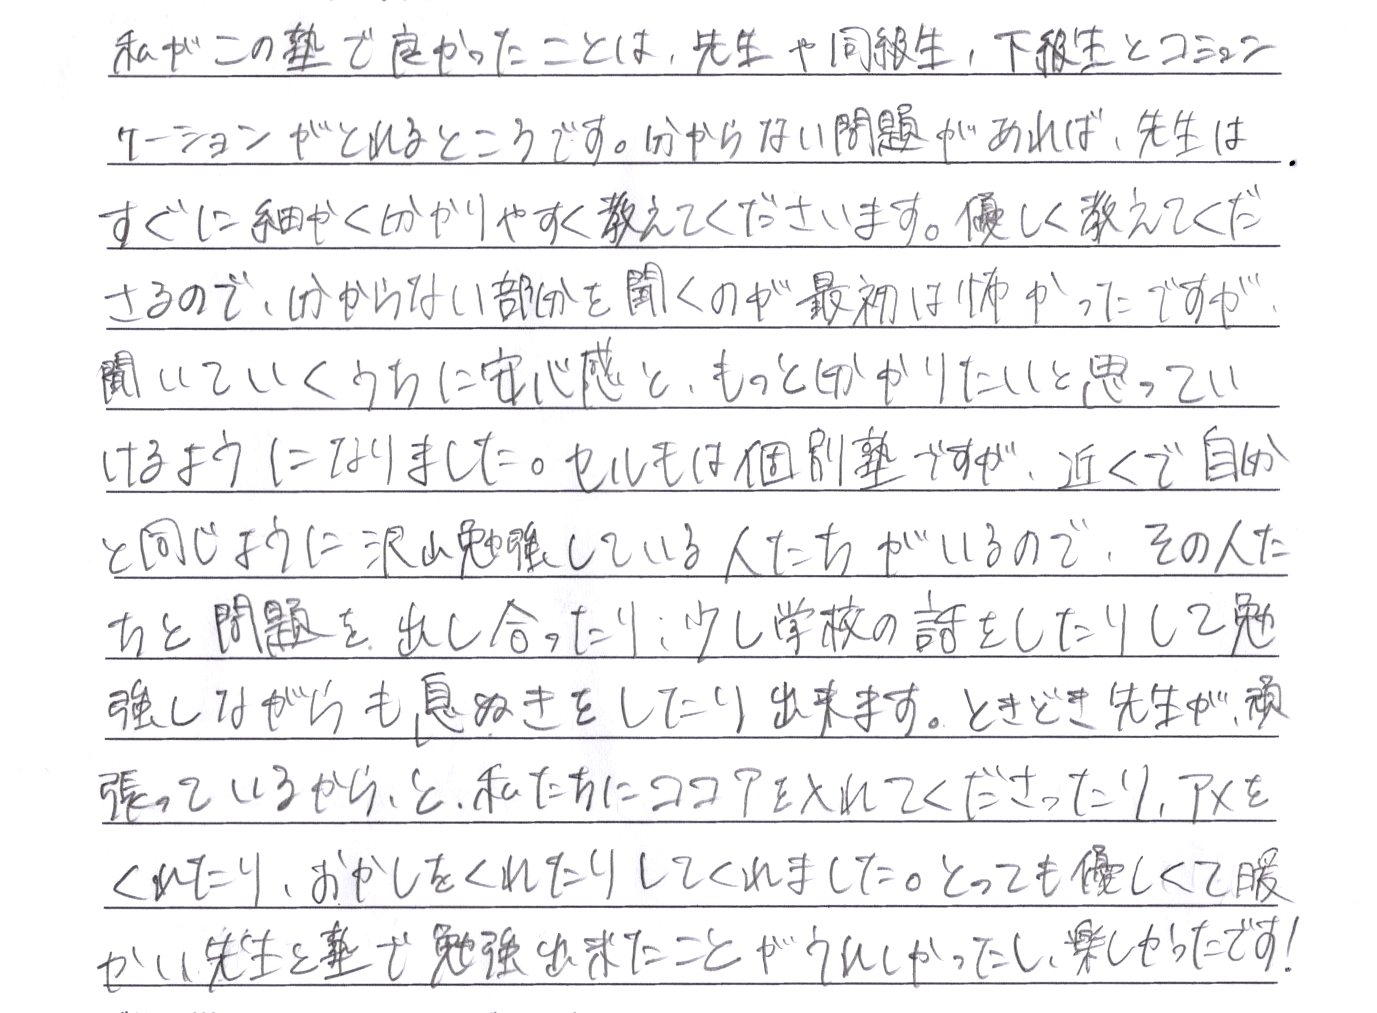 私がこの塾で良かったことは、先生や同級生、下級生とコミュン
ケーションがとれるところです。分からない問題があれば、先生は
すぐに細かく分かりやすく教えてくださいます。優しく教えてくだ
さるので、分からない部分を聞くのが最初は怖かったですが、
聞いていくうちに安心感と、もっと分かりたいと思ってい
けるようになりました。セルモは個別塾ですが、近くで自分
と同じように沢山勉強している人たちがいるので、その人た
ちと問題を出し合ったり、少し学校の話をしたりして勉
強しながらも息ぬきをしたり出来ます。ときどき先生が、頑
張っているから、と、私たちにココアを入れてくださったり、アメを
くれたり、おかしをくれたりしてくれました。とっても優しくて暖
かい先生と塾で勉強出来たことがうれしかったし、楽しかったです!